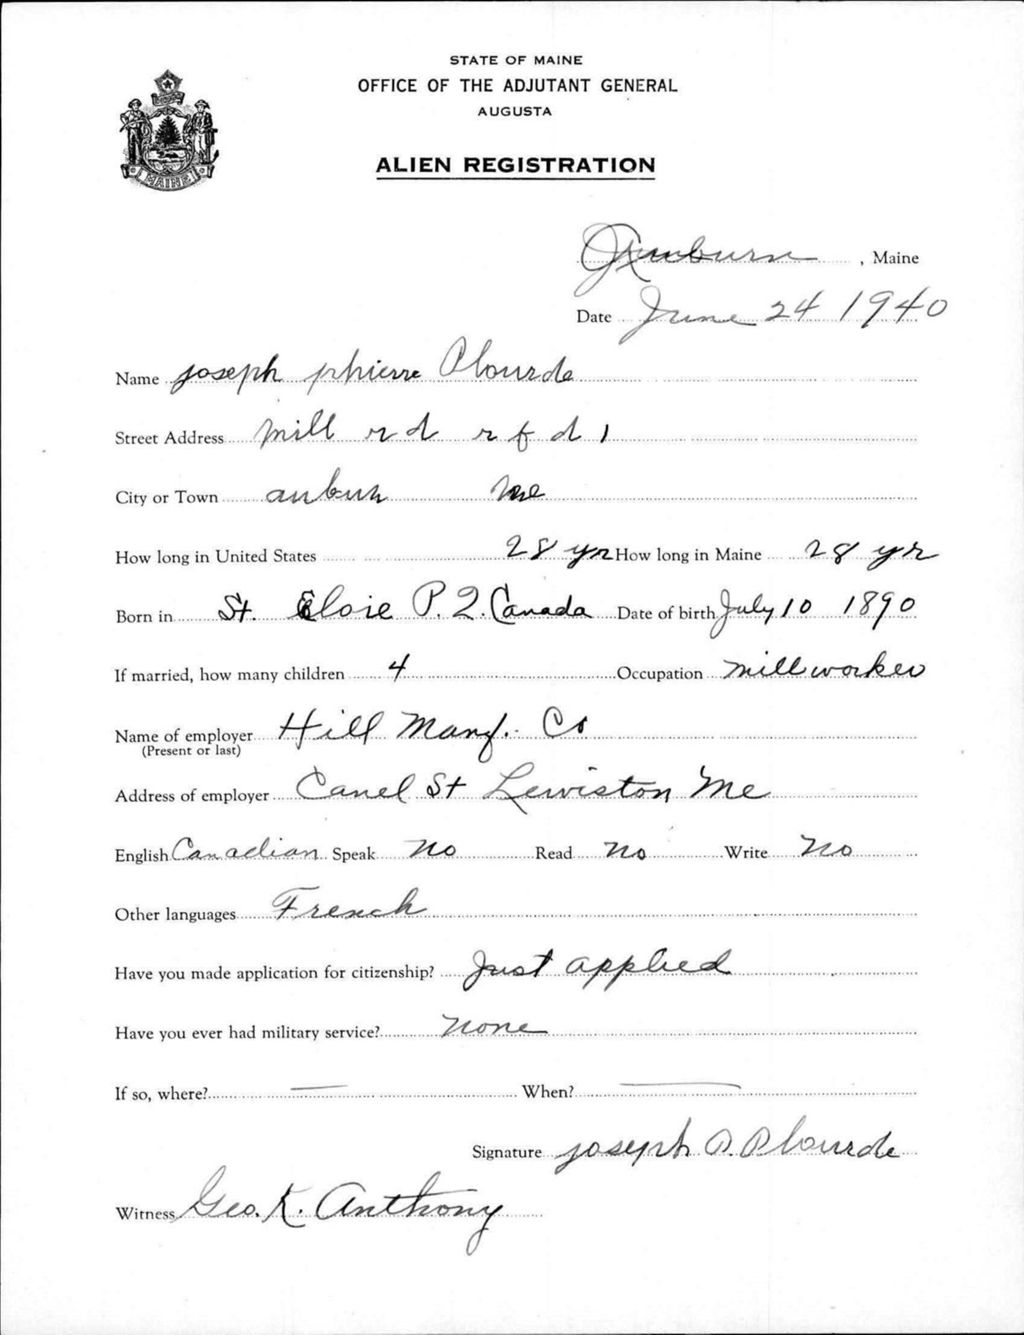 STATE OF MAINE
OFFICE OF THE ADJUTANT GENERAL
AUGUSTA
ALIEN REGISTRATION
MAINE
Auburn, Maine
Date June 24 1940
Name joseph phierre Plourde
Street Address mill rd r f d 1
City or Town auburn Me
How long in United States 28 yr How long in Maine 28 yr
Born in St. Eloie P.Q. Canada Date of birth July 10 1890
If married, how many children 4 Occupation mill worker
Name of employer Hill Manf. Co
(Present or last)
Address of employer Canel St Lewiston Me
English Canadian Speak No Read No Write No
Other languages French
Have you made application for citizenship? Just applied
Have you ever had military service? none
If so, where? — When? —
Signature joseph P. Plourde
Witness Geo. K. Anthony